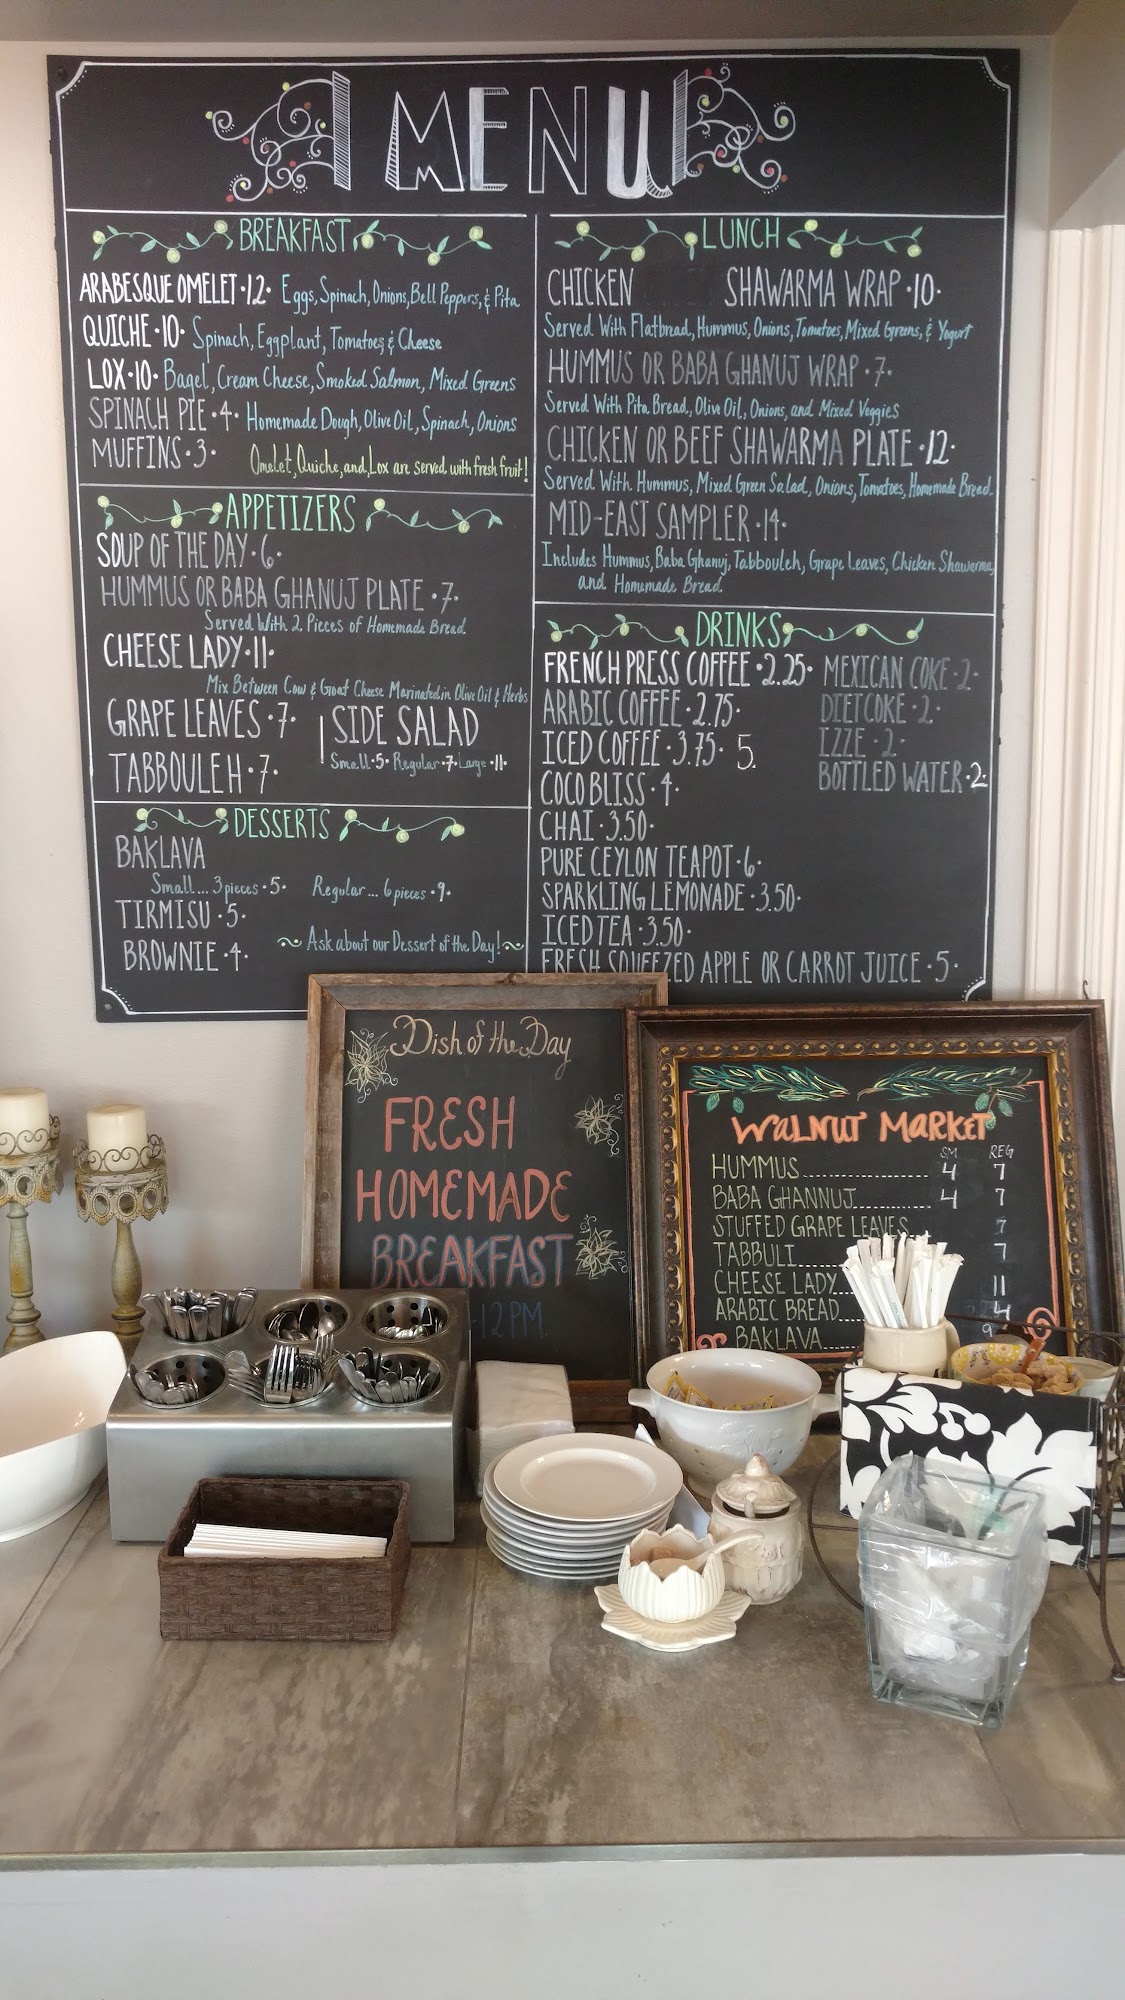 MENU
BREAKFAST
ARABESQUE OMELET · 12 · Eggs, Spinach, Onions, Bell Peppers, & Pita
QUICHE · 10 · Spinach, Eggplant, Tomatoes & Cheese
LOX · 10 · Bagel, Cream Cheese, Smoked Salmon, Mixed Greens
SPINACH PIE · 4 · Homemade Dough, Olive Oil, Spinach, Onions
MUFFINS · 3 ·
Omelet, Quiche, and, Lox are served with fresh fruit!
APPETIZERS
SOUP OF THE DAY · 6 ·
HUMMUS OR BABA GHANUJ PLATE · 7 ·
Served With 2 Pieces of Homemade Bread
CHEESE LADY · 11 ·
Mix Between Cow & Goat Cheese Marinated in Olive Oil & Herbs
GRAPE LEAVES · 7 ·
TABBOULEH · 7 ·
SIDE SALAD
Small · 5 · Regular · 7 · Large · 11 ·
DESSERTS
BAKLAVA
Small... 3 pieces · 5 · Regular... 6 pieces · 9 ·
TIRMISU · 5 ·
BROWNIE · 4 ·
~ Ask about our Dessert of the Day! ~
LUNCH
CHICKEN SHAWARMA WRAP · 10 ·
Served With Flatbread, Hummus, Onions, Tomatoes, Mixed Greens, & Yogurt
HUMMUS OR BABA GHANUJ WRAP · 7 ·
Served With Pita Bread, Olive Oil, Onions, and Mixed Veggies
CHICKEN OR BEEF SHAWARMA PLATE · 12 ·
Served With Hummus, Mixed Green Salad, Onions, Tomatoes, Homemade Bread
MID-EAST SAMPLER · 14 ·
Includes Hummus, Baba Ghanuj, Tabbouleh, Grape Leaves, Chicken Shawarma,
and Homemade Bread
DRINKS
FRENCH PRESS COFFEE · 2.25 ·
ARABIC COFFEE · 2.75 ·
ICED COFFEE · 3.75 · 5.
COCO BLISS · 4 ·
CHAI · 3.50 ·
PURE CEYLON TEAPOT · 6 ·
SPARKLING LEMONADE · 3.50 ·
ICED TEA · 3.50 ·
FRESH SQUEEZED APPLE OR CARROT JUICE · 5 ·
MEXICAN COKE · 2 ·
DIET COKE · 2 ·
IZZE · 2 ·
BOTTLED WATER · 2 ·
Dish of the Day
FRESH
HOMEMADE
BREAKFAST
-12 PM
WALNUT MARKET
SM REG
HUMMUS 4 7
BABA GHANNUJ 4 7
STUFFED GRAPE LEAVES 7
TABBULI 7
CHEESE LADY 11
ARABIC BREAD 4
BAKLAVA 9